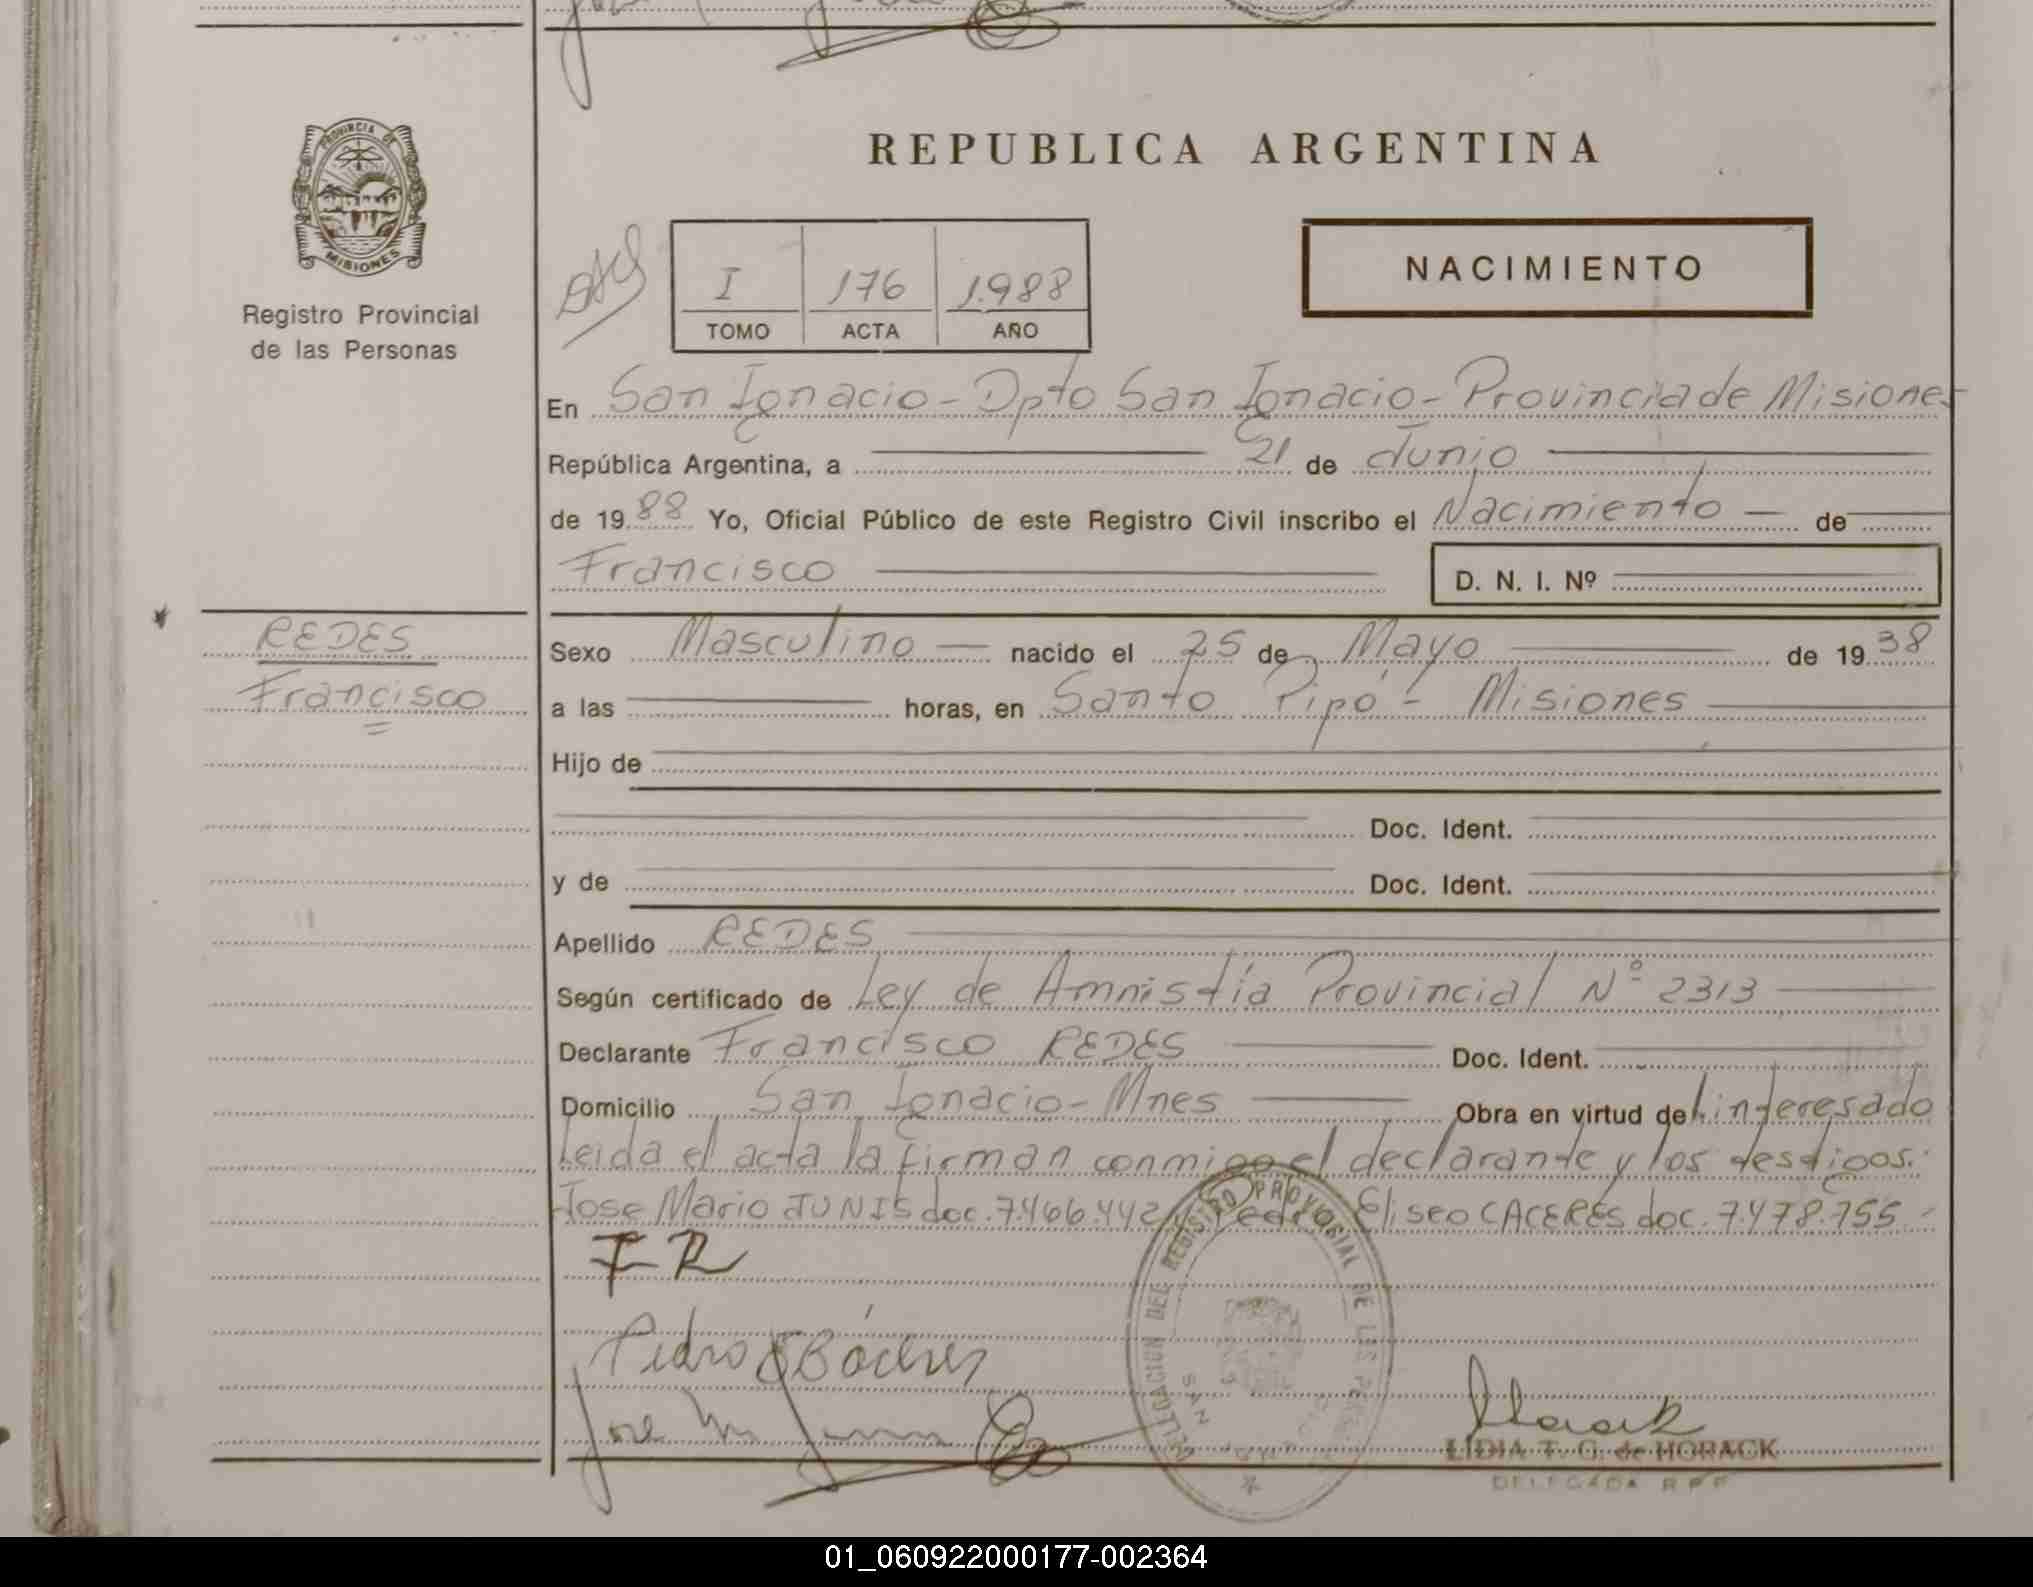 REPUBLICA ARGENTINA
PROVINCIA DE
MISIONES
Registro Provincial
de las Personas
I 176 1.988
TOMO ACTA AÑO
NACIMIENTO
En San Ignacio - Dpto San Ignacio - Provincia de Misiones
República Argentina, a 21 de Junio
de 1988 Yo, Oficial Público de este Registro Civil inscribo el Nacimiento de
Francisco D. N. I. Nº
REDES
Francisco
Sexo Masculino nacido el 25 de Mayo de 1938
a las horas, en Santo Pipó - Misiones
Hijo de
Doc. Ident.
y de Doc. Ident.
Apellido REDES
Según certificado de Ley de Amnistía Provincial N° 2313
Declarante Francisco REDES Doc. Ident.
Domicilio San Ignacio - Mnes Obra en virtud del interesado
Leida el acta la firman conmigo el declarante y los testigos:
Jose Mario JUNIS doc. 7.466.442 y Pedro Eliseo CACERES doc. 7.478.755.-
FR
Pedro E Cáceres
Jose M
DELEGACION DEL REGISTRO PROVINCIAL DE LAS PERS
SAN
Horack
LIDIA T. G. de HORACK
DELEGADA R P P
01_060922000177-002364